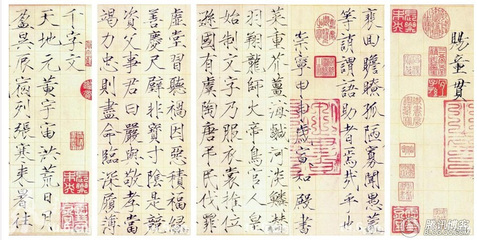 千字文
天地元黃宇宙洪荒日月
盈昃辰宿列張寒來暑往
虛堂習聽禍因惡積福緣
善慶尺璧非寶寸陰是競
資父事君曰嚴與敬孝當
竭力忠則盡命臨深履薄
菜重芥薑海鹹河淡鱗潛
羽翔龍師火帝鳥官人皇
始制文字乃服衣裳推位
遜國有虞陶唐弔民伐罪
裵回瞻眺孤陋寡聞愚蒙
等誚謂語助者焉哉乎也
崇寧甲申歲宣和殿書
賜童貫